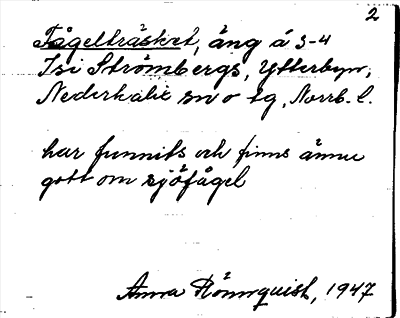 2
Fågelträsket, äng å 3-4
Isi Strömbergs, Ytterbyn,
Nederkalix sn o tg, Norrb. l.
har funnits och finns ännu
gott om sjöfågel
Anna Rönnquist, 1947